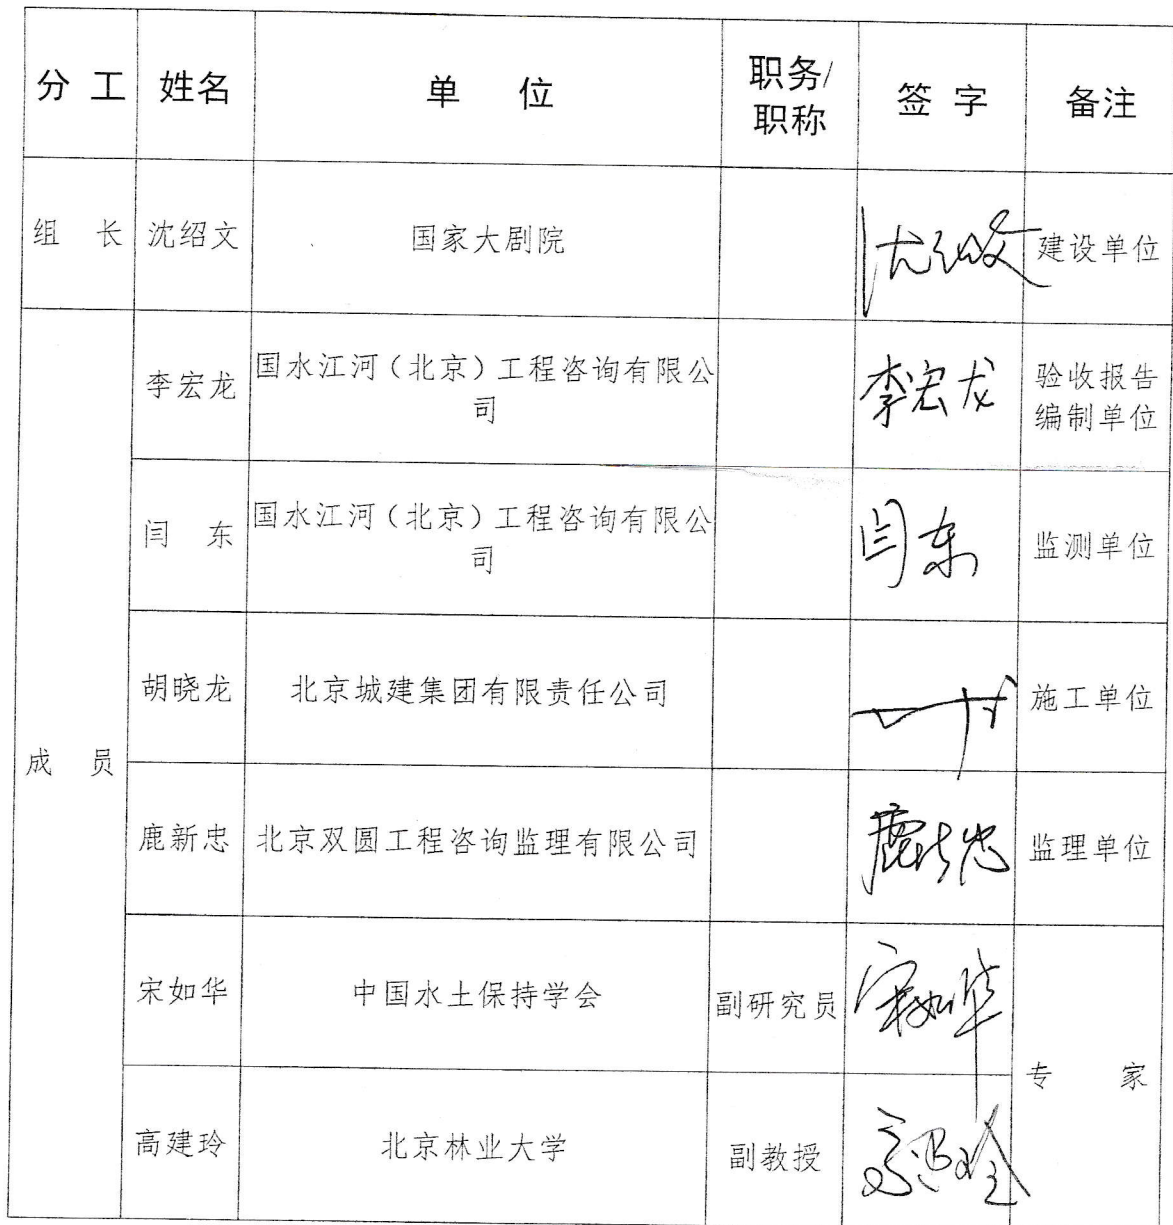 分 工 姓名 单 位 职务/职称 签 字 备注
组 长 沈绍文 国家大剧院 沈绍文 建设单位
李宏龙 国水江河（北京）工程咨询有限公司 李宏龙 验收报告编制单位
闫 东 国水江河（北京）工程咨询有限公司 闫东 监测单位
胡晓龙 北京城建集团有限责任公司 施工单位
成 员
鹿新忠 北京双圆工程咨询监理有限公司 鹿新忠 监理单位
宋如华 中国水土保持学会 副研究员 宋如华
专 家
高建玲 北京林业大学 副教授 高建玲